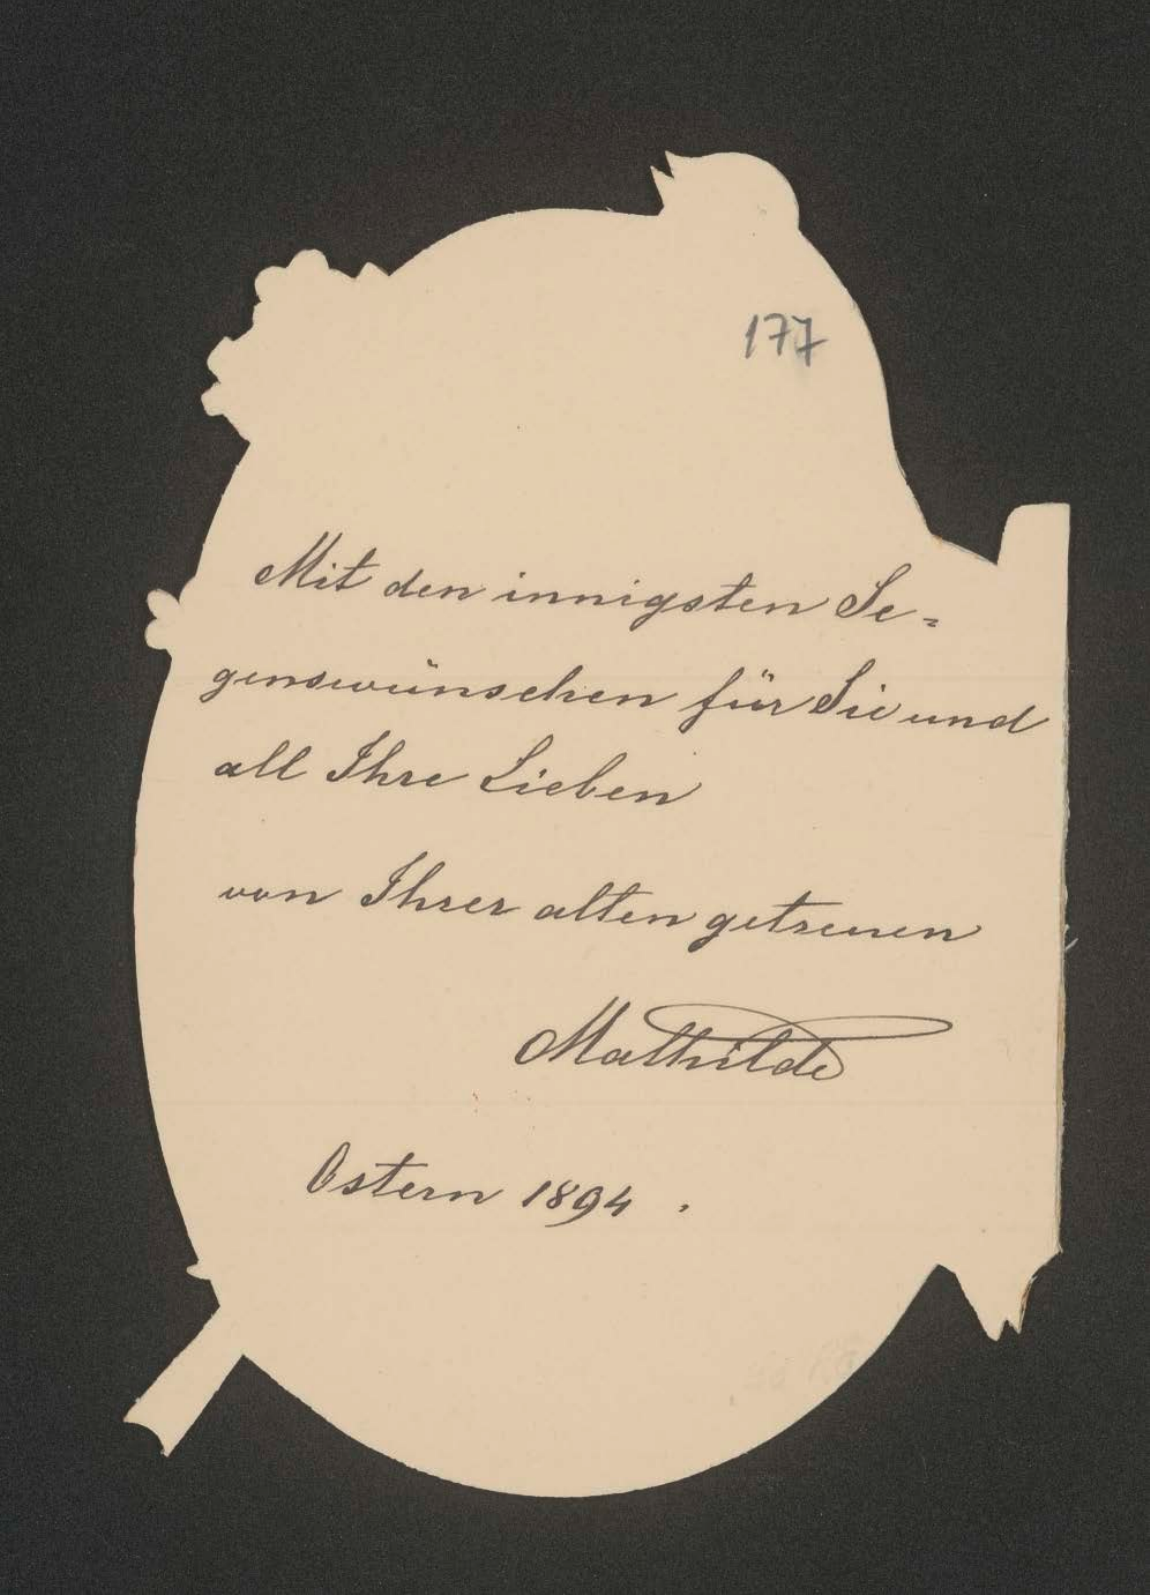 177
Mit den innigsten Se=
genswünschen für Sie und
all Ihre Lieben
von Ihrer alten getreuen
Mathilde
Ostern 1894.